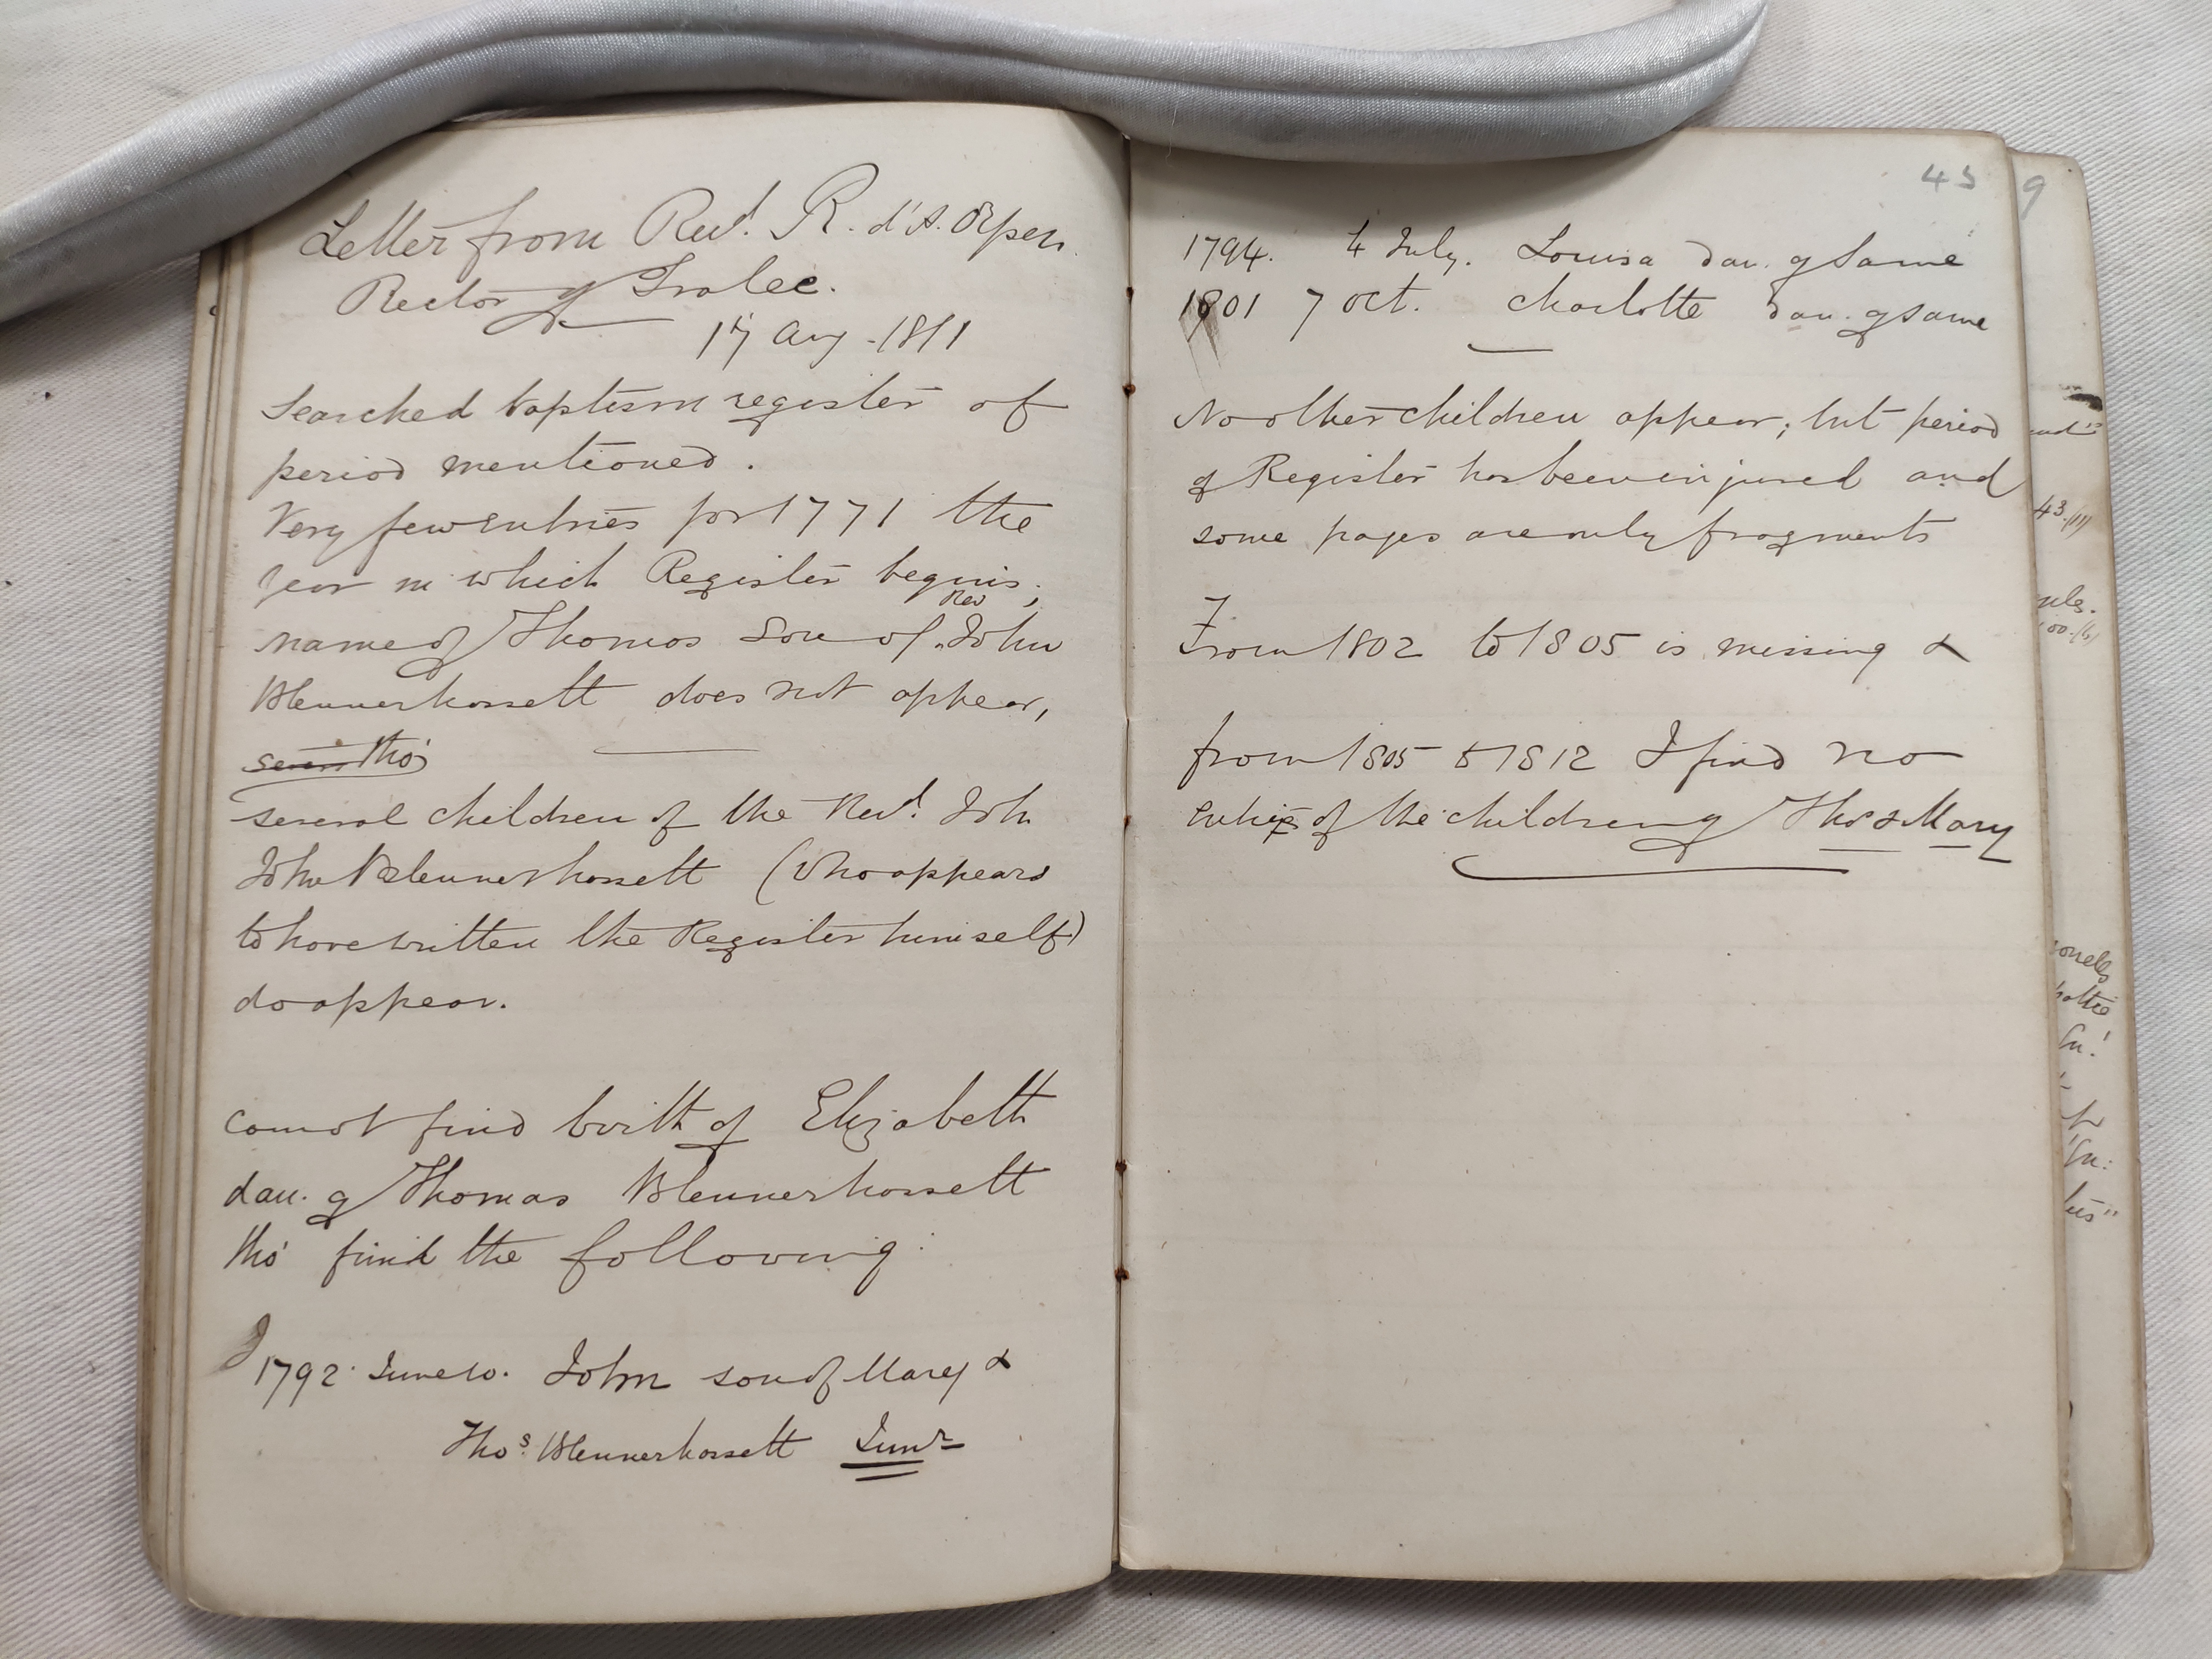 Letter from Revd. R. d'A. Orpen.
Rector of Tralee.
17 Aug. 1811
Searched baptism register of
period mentioned.
Very few entries for 1771 the
year in which Register begins;
Rev
name of Thomas son of John
Blennerhassett does not appear,
tho'
several children of the Revd. John
John Blennerhassett (who appears
to have written the Register himself)
do appear.
cannot find birth of Elizabeth
dau. of Thomas Blennerhassett
tho' find the following:
1792. June 10. John son of Mary &
Thos. Blennerhassett Junr
43
1794. 4 July. Louisa dau. of same
1801 7 Oct. Charlotte dau. of same
No other children appear; but period
of Register has been injured and
some pages are only fragments
From 1802 to 1805 is missing &
from 1805 to 1812 I find no
entries of the children of Thos & Mary
9
43